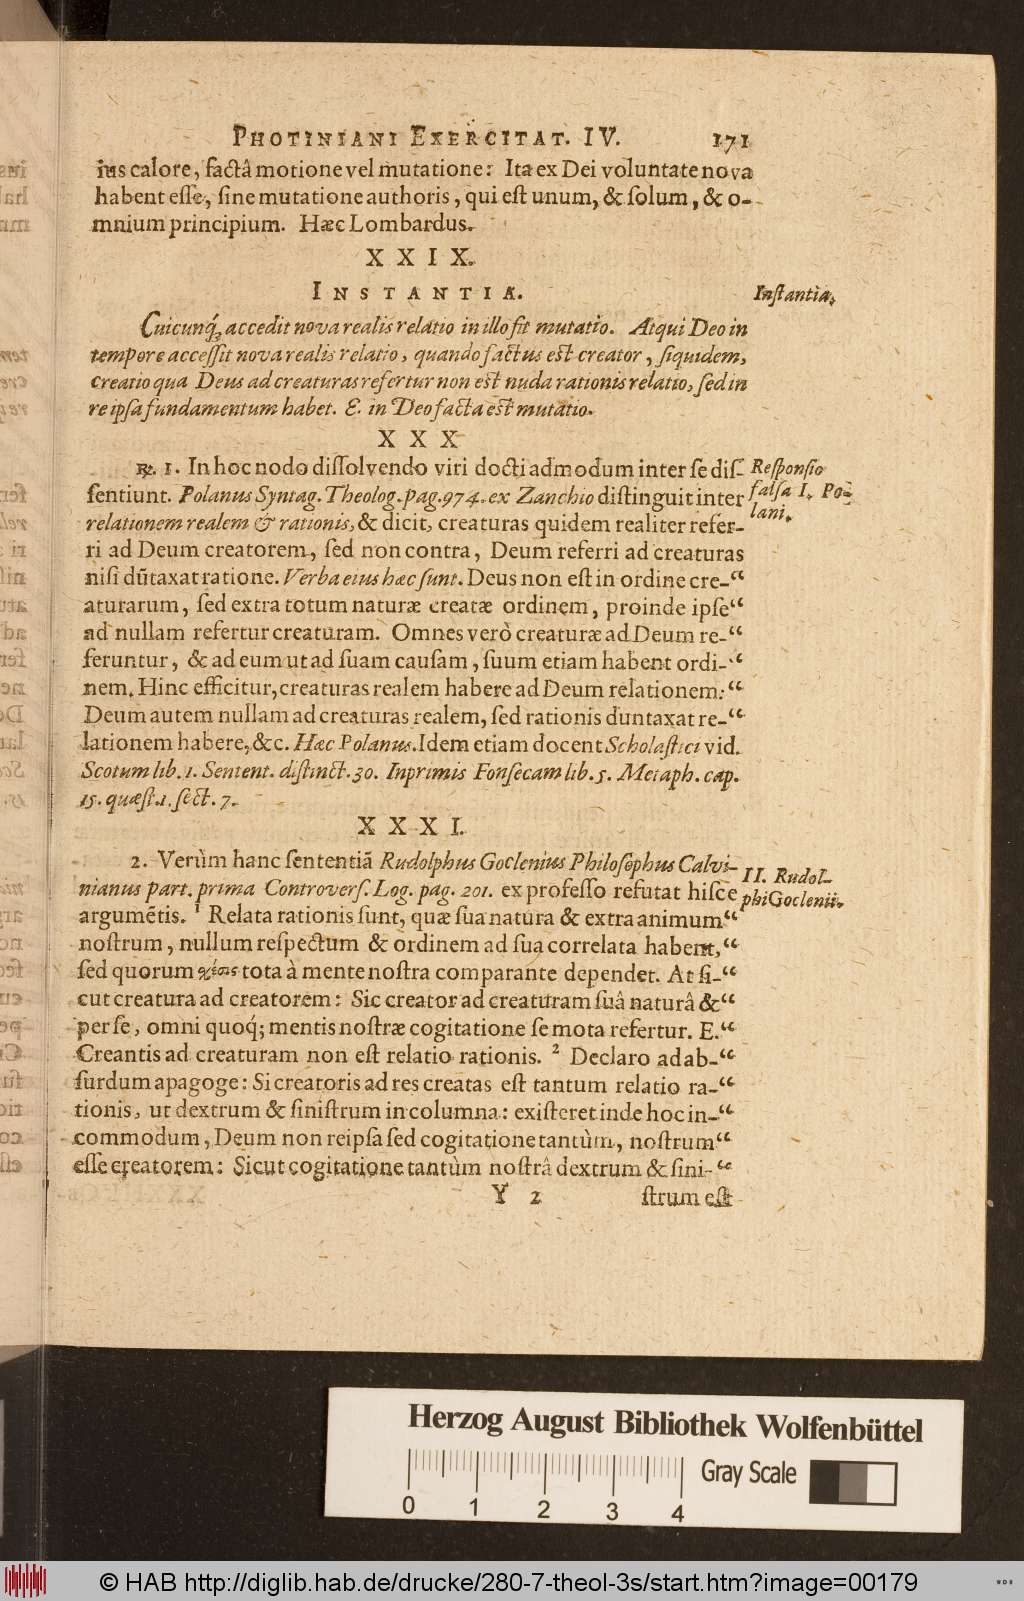 PHOTINIANI EXERCITAT. IV. 171
ius calore, factâ motione vel mutatione: Ita ex Dei voluntate nova
habent esse, sine mutatione authoris, qui est unum, & solum, & o-
mnium principium. Hæc Lombardus.
XXIX.
INSTANTIA.
Instantia.
Cuicunq́; accedit nova realis relatio in illo fit mutatio. Atqui Deo in
tempore accessit nova realis relatio, quando factus est creator, siquidem,
creatio qua Deus ad creaturas refertur non est nuda rationis relatio, sed in
re ipsa fundamentum habet. E. in Deo facta est mutatio.
XXX
℞. 1. In hoc nodo dissolvendo viri docti admodum inter se dis-
Responsio
falsa I. Po-
lani.
sentiunt. Polanus Syntag. Theolog. pag. 974. ex Zanchio distinguit inter
relationem realem & rationis, & dicit, creaturas quidem realiter refer-
ri ad Deum creatorem, sed non contra, Deum referri ad creaturas
nisi dūtaxat ratione. Verba eius hæc sunt. Deus non est in ordine cre-“
aturarum, sed extra totum naturæ creatæ ordinem, proinde ipse“
ad nullam refertur creaturam. Omnes verò creaturæ ad Deum re-“
feruntur, & ad eum ut ad suam causam, suum etiam habent ordi-“
nem. Hinc efficitur, creaturas realem habere ad Deum relationem:“
Deum autem nullam ad creaturas realem, sed rationis duntaxat re-“
lationem habere, &c. Hæc Polanus. Idem etiam docent Scholastici vid.
Scotum lib. 1. Sentent. distinct. 30. Inprimis Fonsecam lib. 5. Metaph. cap.
15. quæst. 1. sect. 7.
XXXI.
2. Verùm hanc sententiā Rudolphus Goclenius Philosophus Calvi-
II. Rudol-
phi Goclenii.
nianus part. prima Controvers. Log. pag. 201. ex professo refutat hisce
argumētis. 1 Relata rationis sunt, quæ sua natura & extra animum“
nostrum, nullum respectum & ordinem ad sua correlata habent,“
sed quorum σχέσις tota à mente nostra comparante dependet. At si-“
cut creatura ad creatorem: Sic creator ad creaturam suâ naturâ &“
per se, omni quoq́; mentis nostræ cogitatione semota refertur. E.“
Creantis ad creaturam non est relatio rationis. 2 Declaro ad ab-“
surdum apagoge: Si creatoris ad res creatas est tantum relatio ra-“
tionis, ut dextrum & sinistrum in columna: existeret inde hoc in-“
commodum, Deum non reipsa sed cogitatione tantùm, nostrum“
esse creatorem: Sicut cogitatione tantùm nostrâ dextrum & sini-“
Y 2 strum est
Herzog August Bibliothek Wolfenbüttel
Gray Scale
0 1 2 3 4
© HAB http://diglib.hab.de/drucke/280-7-theol-3s/start.htm?image=00179